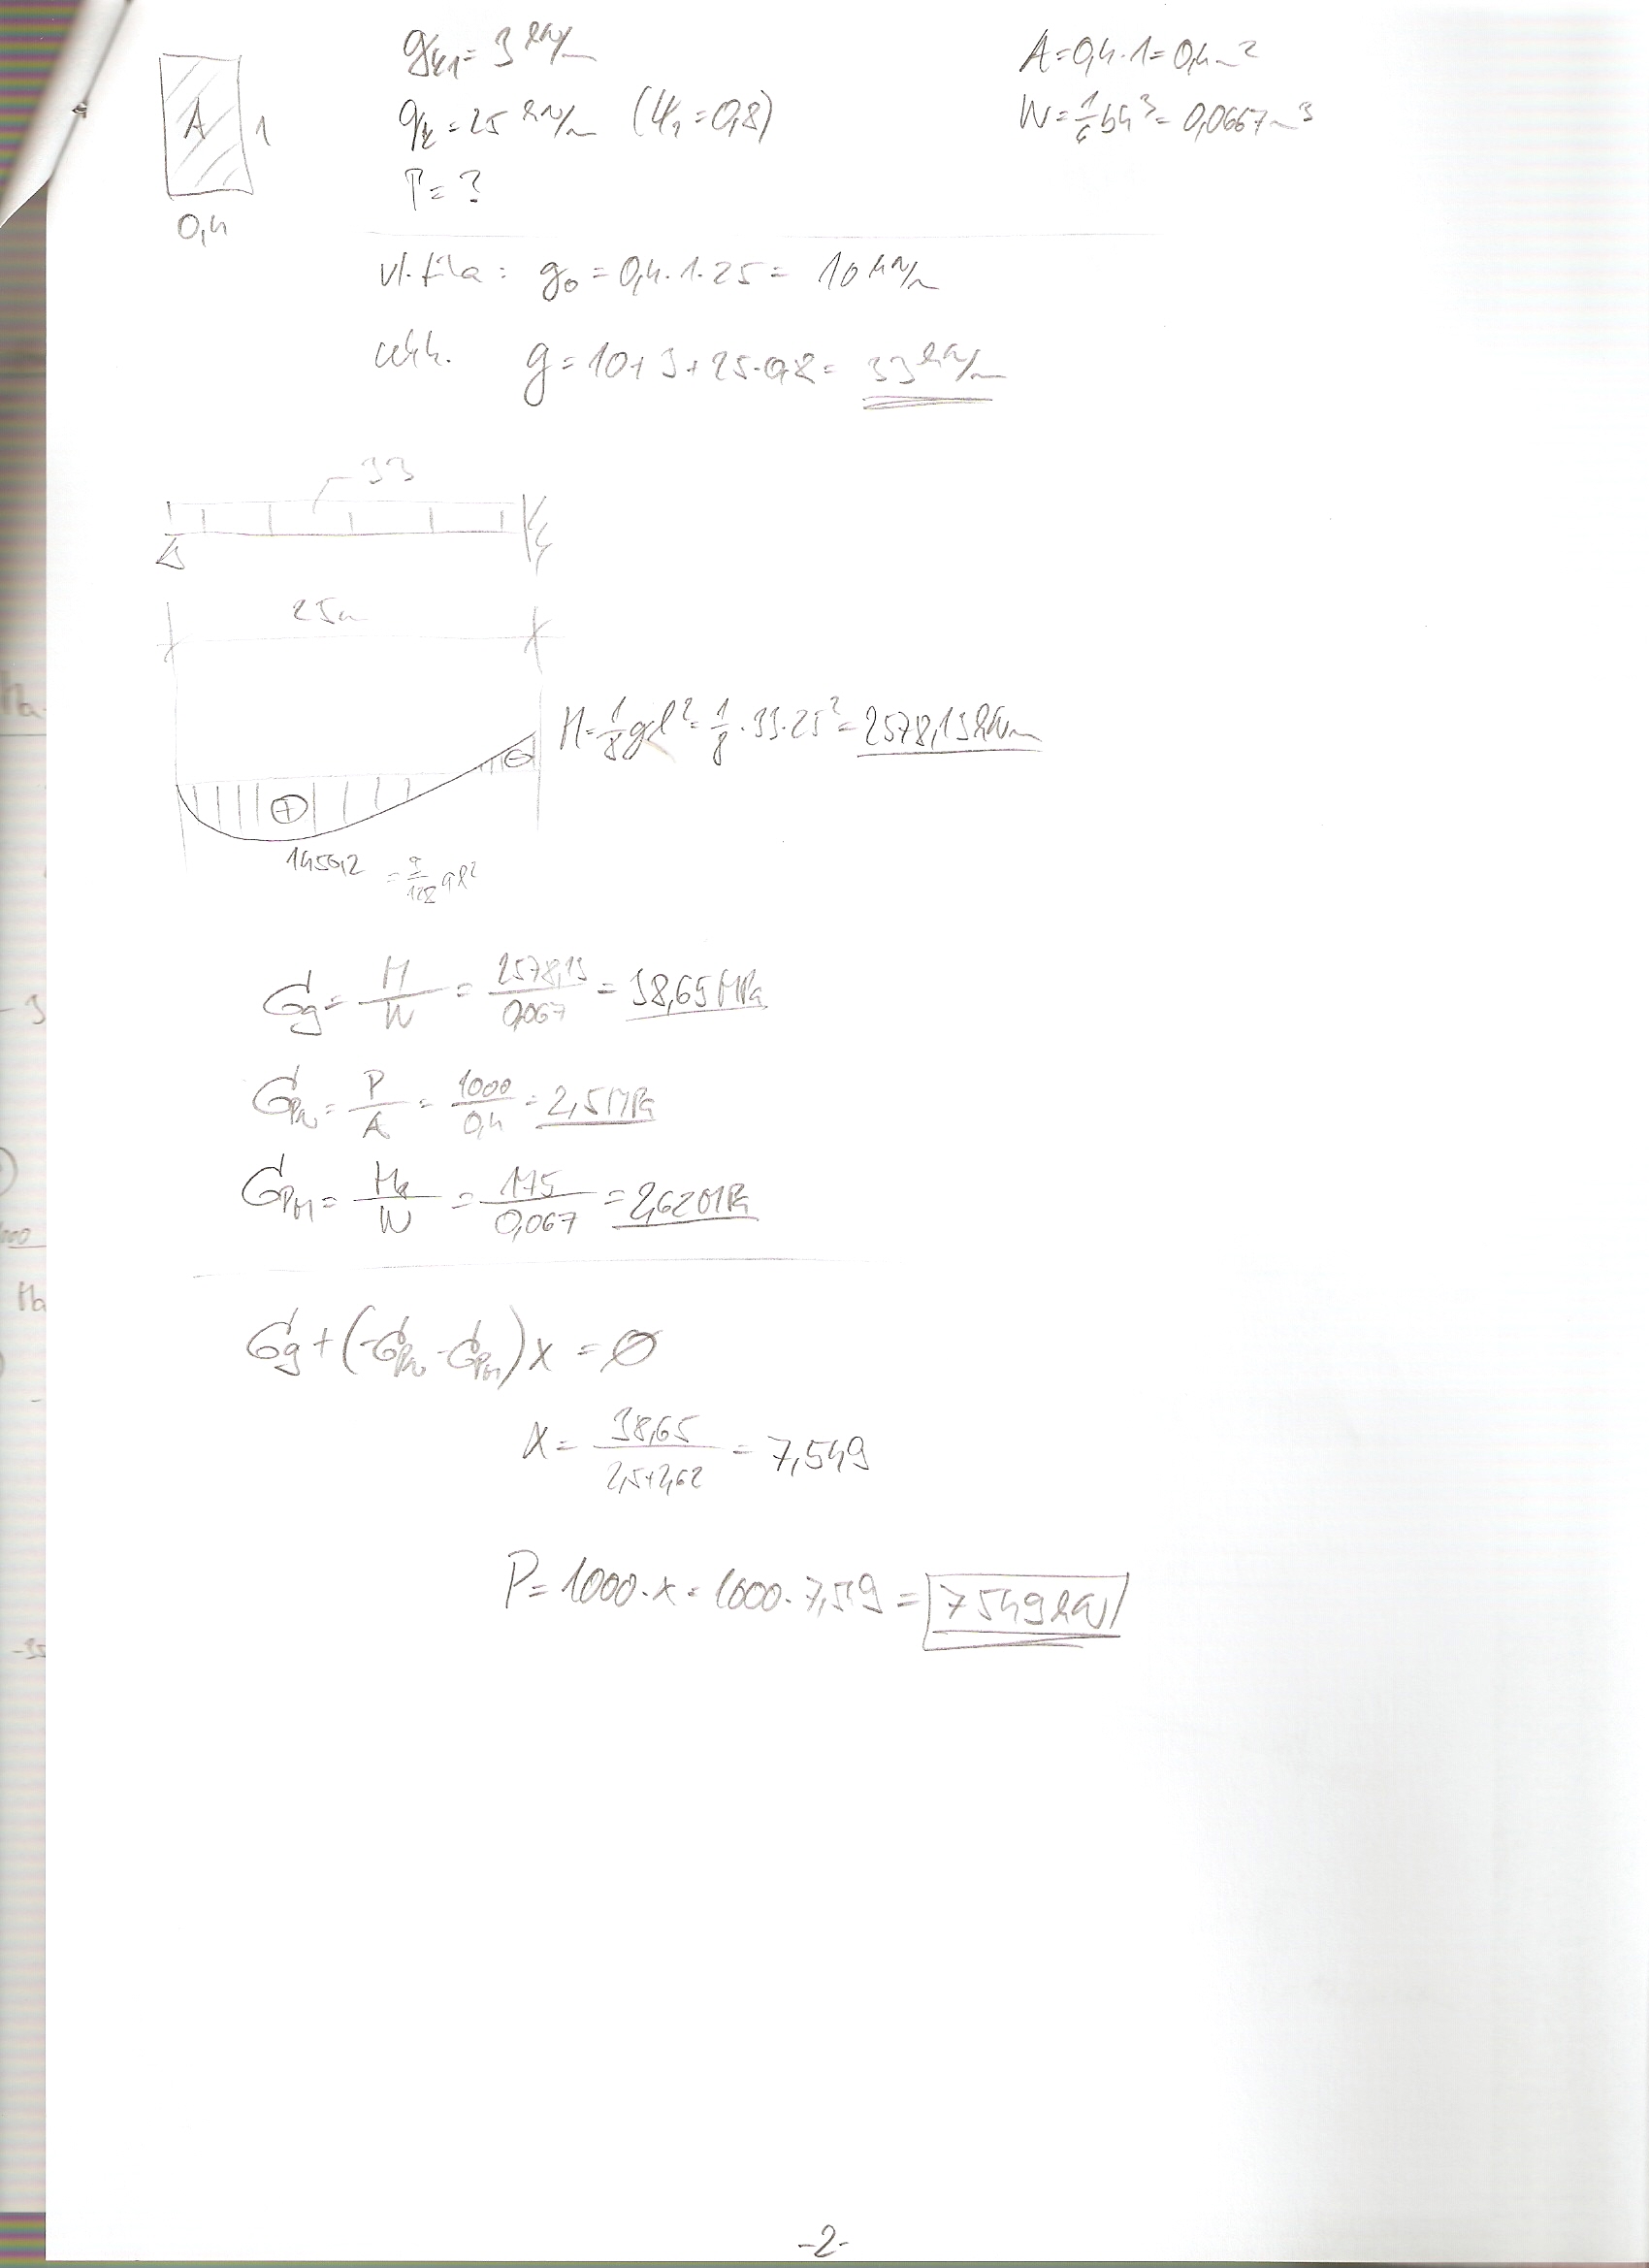 gk1 = 3 kN/m
A = 0,4 · 1 = 0,4 m²
A
1
qk = 25 kN/m (ψ1 = 0,8)
W = 1/6 bh³ = 0,0667 m³
P = ?
0,4
vl. tíha : g0 = 0,4 · 1 · 25 = 10 kN/m
celk. g = 10 + 3 + 25 · 0,8 = 33 kN/m
33
25m
M = 1/8 gl² = 1/8 · 33 · 25² = 2578,13 kNm
⊖
⊕
1450,2 = 9/128 ql²
σg = M/W = 2578,13/0,067 = 38,65 MPa
σPN = P/A = 1000/0,4 = 2,5 MPa
σPM = /W = 175/0,067 = 2,62 MPa
σg + (-σPN - σPM) x = ∅
x = 38,65/2,5+2,62 = 7,549
P = 1000 · x = 1000 · 7,59 = 7549 kN
-2-